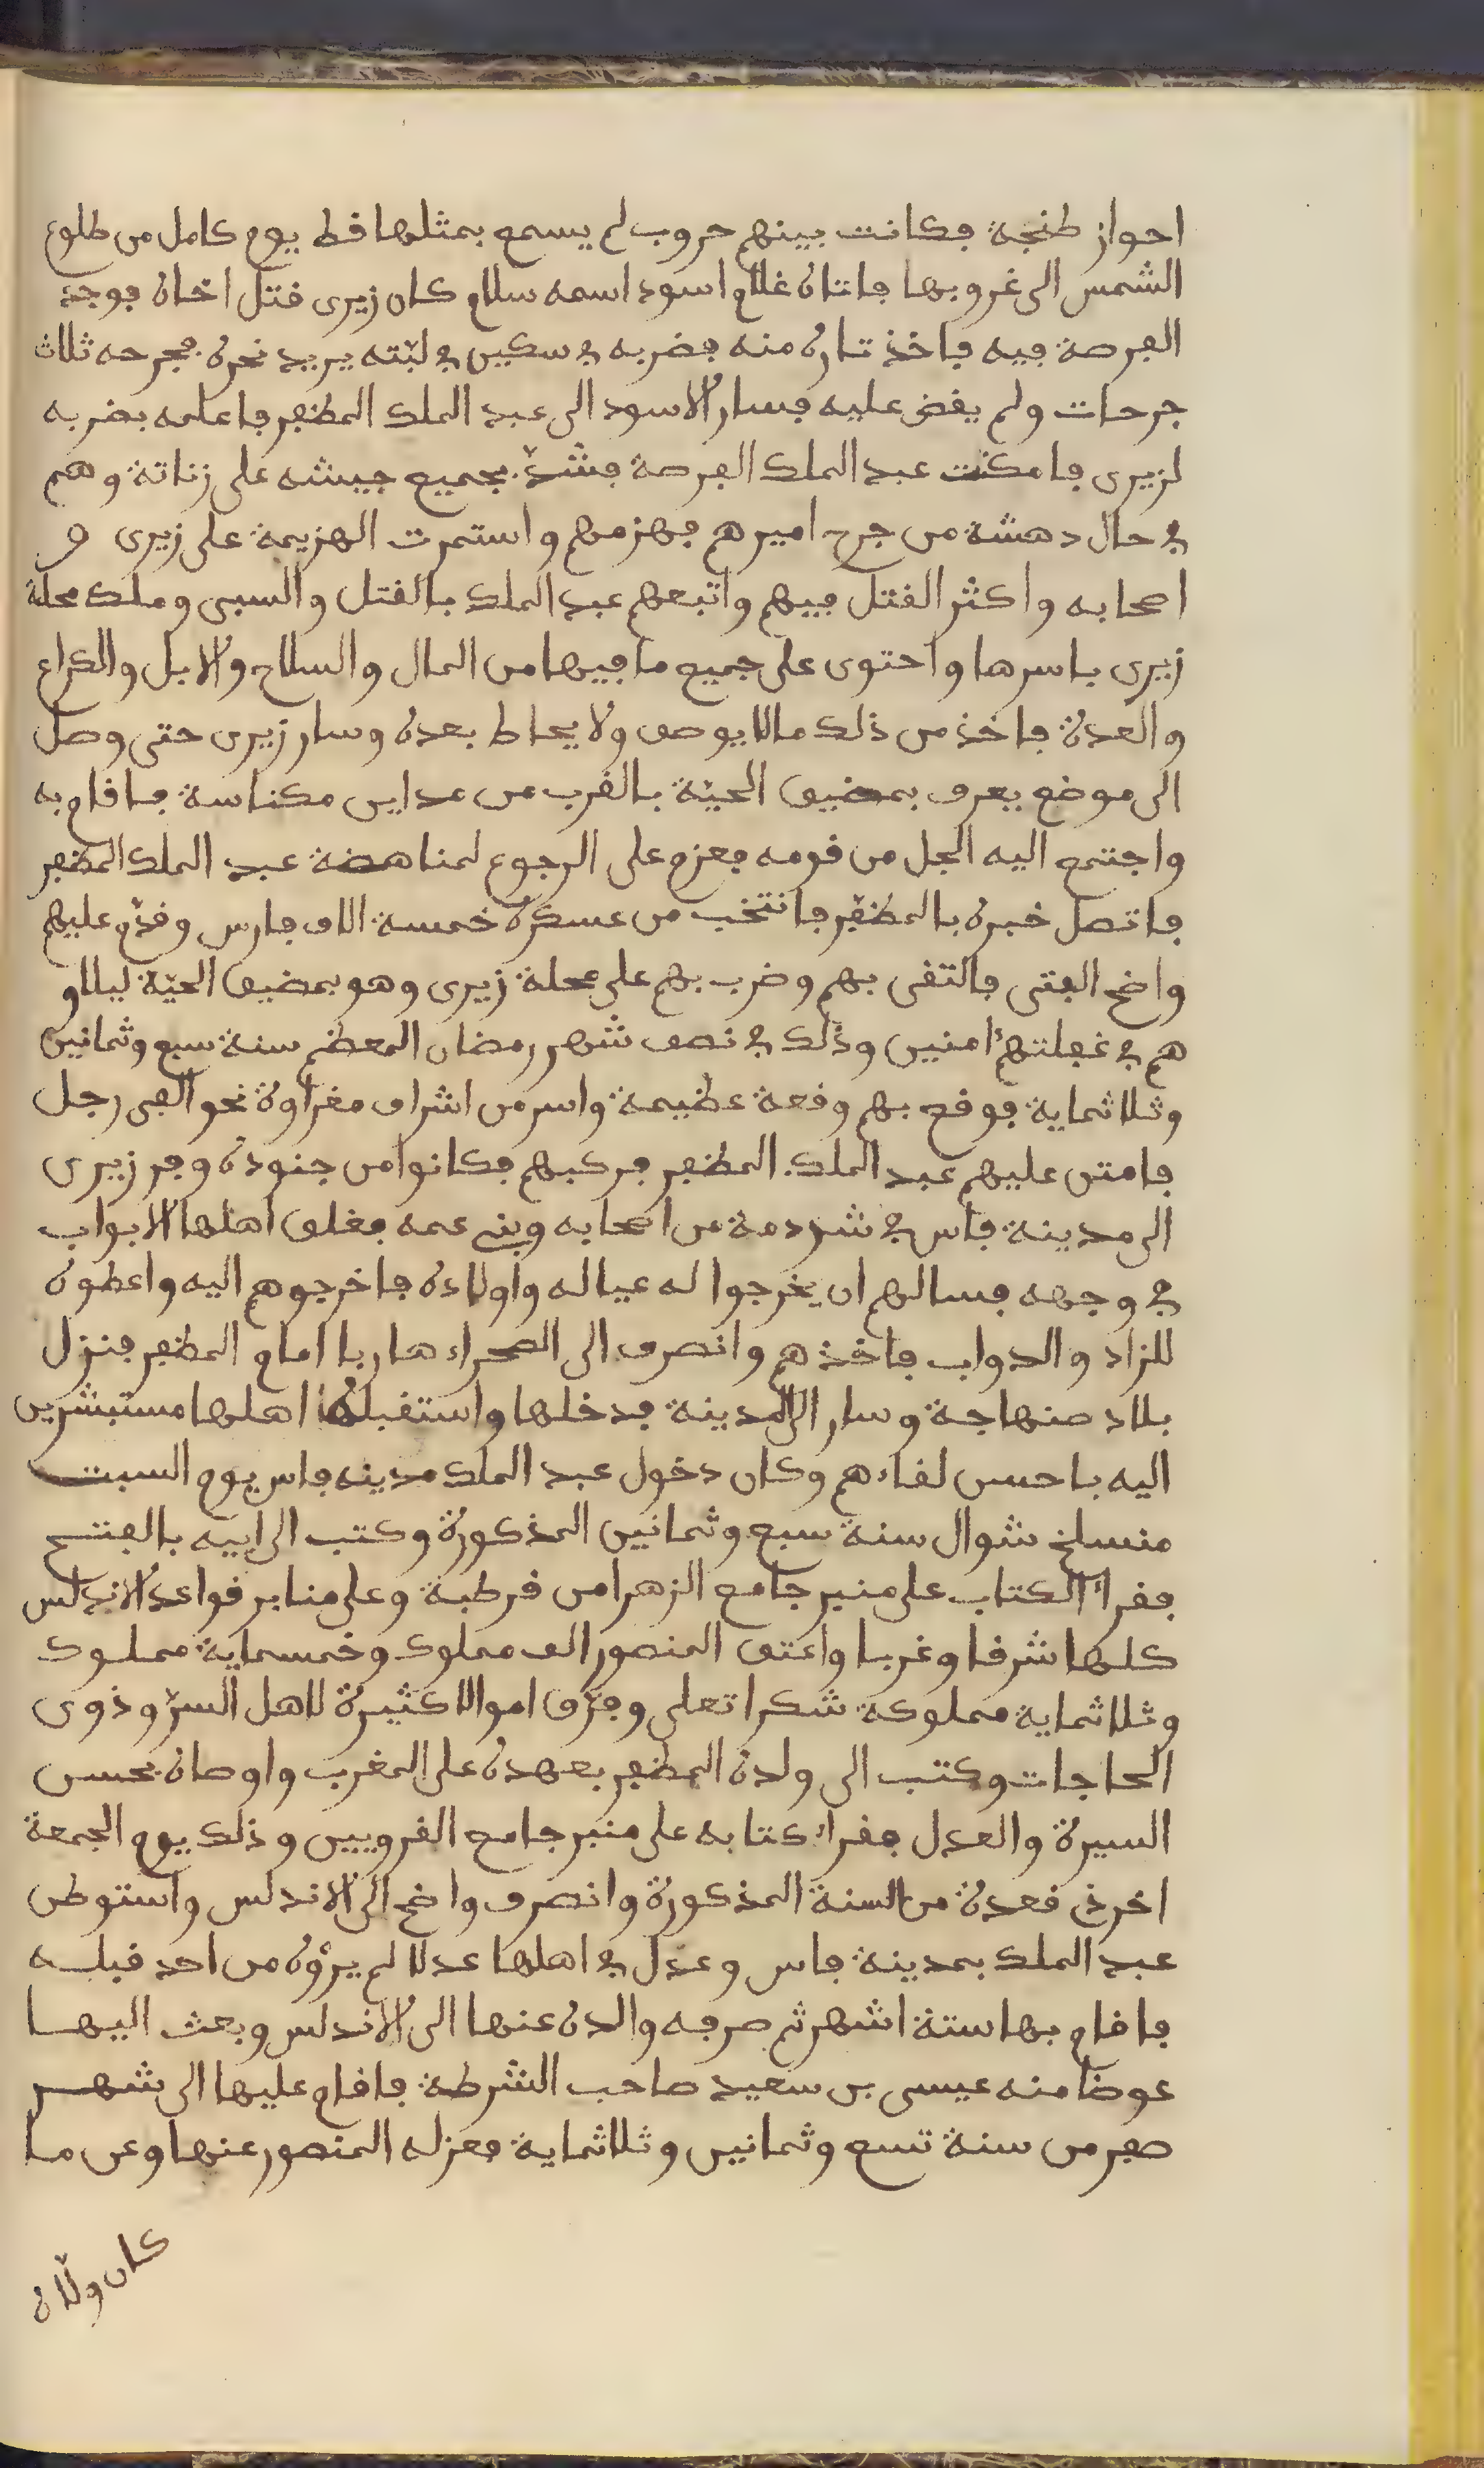 احواز طنجة فكانت بينهم حروب لم يسمع بمثلها قط يوم كامل من طلوع
الشمس الى غروبها فاتاه غلام اسود اسمه سلام كان زيرى قتل اخاه فوجد
الفرصة فيه فاخذ ثاره منه فضربه في سكين في لبّته يريد نحره فجرحه ثلاث
جرحات ولم يقض عليه فسار الاسود الى عبد الملك المظفر فاعلمه بضربه
لزيرى فامكنت عبد الملك الفرصة فشدّ بجميع جيشه على زناتة وهم
في حال دهشة من جرح اميرهم فهزمهم واستمرت الهزيمة على زيرى و
اصحابه واكثر القتل فيهم واتبعهم عبد الملك بالقتل والسبى وملك محلة
زيرى باسرها واحتوى على جميع ما فيها من المال والسلاح والابل والكراع
والعدة فاخذ من ذلك مالا يوصف ولا يحاط بعده وسار زيرى حتى وصل
الى موضع يعرف بمضيق الحيّة بالقرب من مداين مكناسة فاقام به
واجتمع اليه الجل من قومه فعزم على الرجوع لمناهضة عبد الملك المظفر
فاتصل خبره بالمظفّر فانتخب من عسكره خمسة الاف فارس وقدّم عليهم
واضح الفتى فالتقى بهم وضرب بهم على محلة زيرى وهو بمضيق الحيّة ليلا و
هم في غفلتهم امنين وذلك في نصف شهر رمضان المعظم سنة سبع وثمانين
وثلاثماية فوقع بهم وقعة عظيمة واسر من اشراف مغراوة نحو الفى رجل
فامتن عليهم عبد الملك المظفر فركبهم فكانوا من جنوده وفر زيرى
الى مدينة فاس في شردمة من اصحابه وبني عمه فغلق اهلها الابواب
في وجهه فسالهم ان يخرجوا له عياله واولاده فاخرجوهم اليه واعطوه
للزاد والدواب فاخذهم وانصرف الى الصحراء هاربا امام المظفر فنزل
بلاد صنهاجة وسار الى المدينة فدخلها واستقبله اهلها مستبشرين
اليه باحسن لقاءهم وكان دخول عبد الملك مدينه فاس يوم السبت
منسلخ شوال سنة سبع وثمانين المذكورة وكتب الى ابيه بالفتح
فقرأ الكتاب على منبر جامع الزهرا من قرطبة وعلى منابر قواعد الاندلس
كلها شرقا وغربا واعتق المنصور الف مملوك وخمسماية مملوك
وثلاثماية مملوكة شكرا تعلى وفرّق اموالا كثيرة لاهل السرّ وذوى
الحاجات وكتب الى ولده المظفر بعهده على المغرب واوصاه بحسن
السيرة والعدل فقراء كتابه على منبر جامع القرويين وذلك يوم الجمعة
اخر ذى قعدة من السنة المذكورة وانصرف واضح الى الاندلس واستوطن
عبد الملك بمدينة فاس وعدل في اهلها عدلا لم يرؤه من احد قبله
فاقام بها ستة اشهر ثم صرفه والده عنها الى الاندلس وبعث اليها
عوضا منه عيسى بن سعيد صاحب الشرطة فاقام عليها الى شهر
صفر من سنة تسع وثمانين وثلاثماية فعزله المنصور عنها وعن ما
كان ولّاه